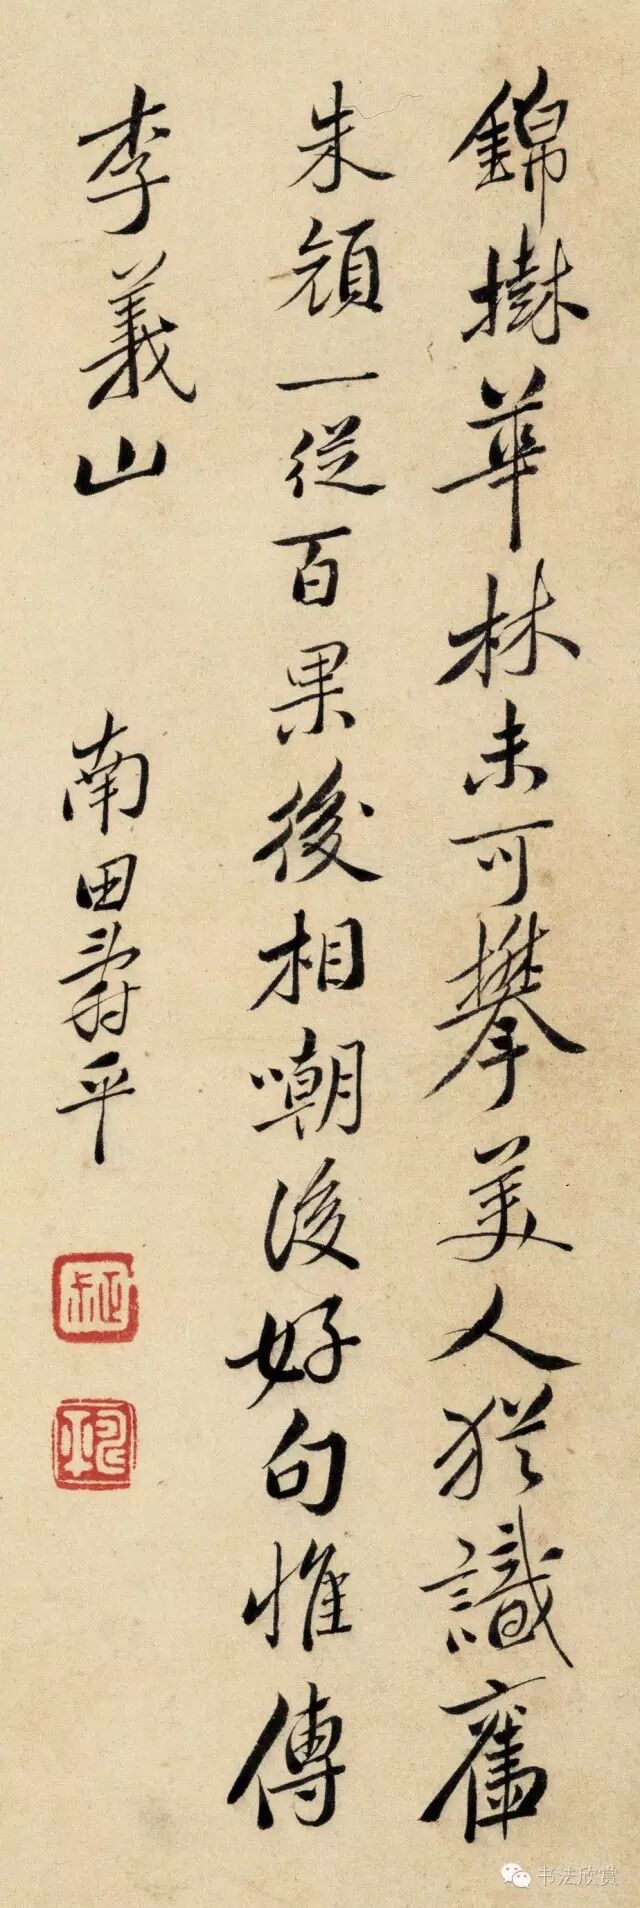 錦樹華林未可攀美人犹識舊
朱顔一從百果後相嘲後好句惟傳
李義山
南田壽平
书法欣赏